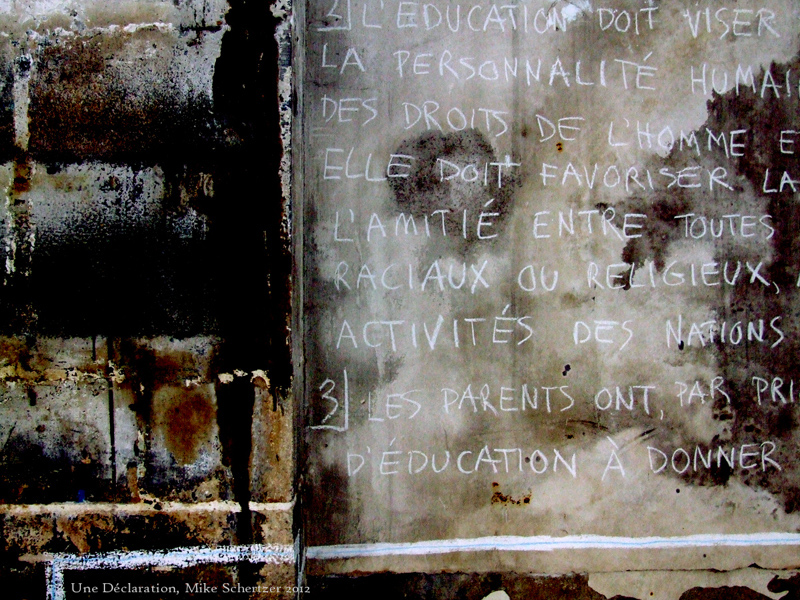 2] L'ÉDUCATION DOIT VISER
LA PERSONNALITÉ HUMAI
DES DROITS DE L'HOMME E
ELLE DOIT FAVORISER LA
L'AMITIÉ ENTRE TOUTES
RACIAUX OU RELIGIEUX,
ACTIVITÉS DES NATIONS
3] LES PARENTS ONT, PAR PRI
D'ÉDUCATION À DONNER
Une Déclaration, Mike Schertzer 2012